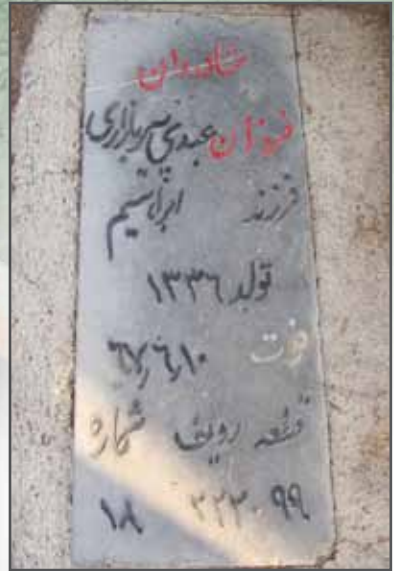 شادروان
فرزان عبدی پیربازاری
فرزند ابراهیم
تولد ۱۳۳۶
فوت ۶۷٫۶٫۱۰
قطعه ردیف شماره
۹۹ ۲۲۳۰ ۱۸